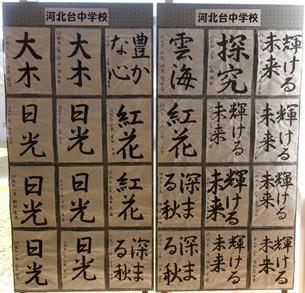 河北台中学校
輝ける
未来
探究
雲海
輝ける
未来
輝ける
未来
紅花
輝ける
未来
輝ける
未来
深ま
る秋
輝ける
未来
輝ける
未来
深ま
る秋
河北台中学校
豊か
な心
大木
大木
紅花
日光
日光
紅花
日光
日光
深ま
る秋
日光
日光